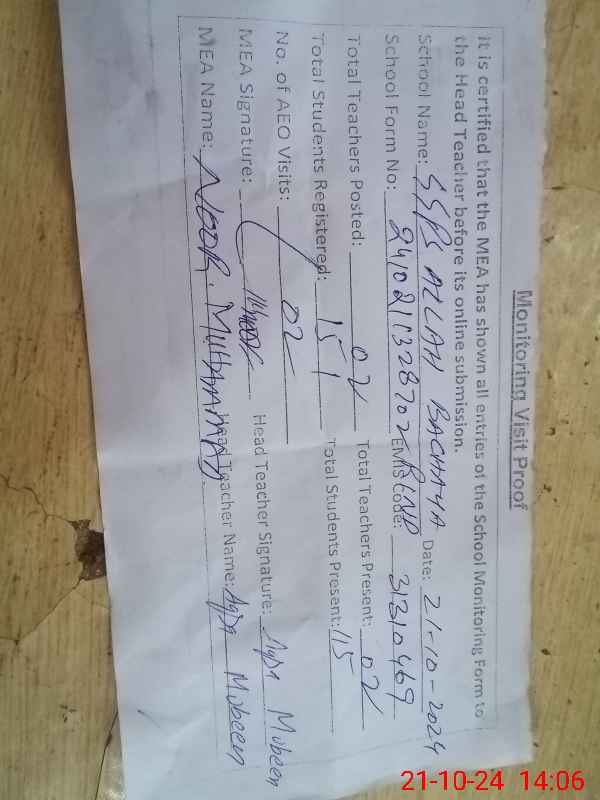 Monitoring Visit Proof
It is certified that the MEA has shown all entries of the School Monitoring Form to
the Head Teacher before its online submission.
School Name: GGPS ALLAH BACHAYA Date: 21-10-2024
School Form No: EMIS Code: 31310469
Total Teachers Posted: 02 Total Teachers Present: 02
Total Students Registered: 151 Total Students Present: 115
No. of AEO Visits: 02
MEA Signature: Head Teacher Signature: Aqsa Mubeen
MEA Name: NOOR. MUHAMMAD Head Teacher Name: Aqsa Mubeen
21-10-24 14:06